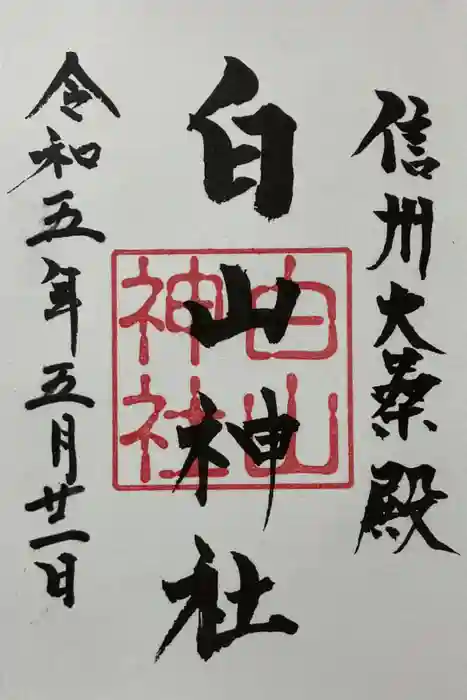 信州大桑殿
白山神社
白山神社
令和五年五月廿二日